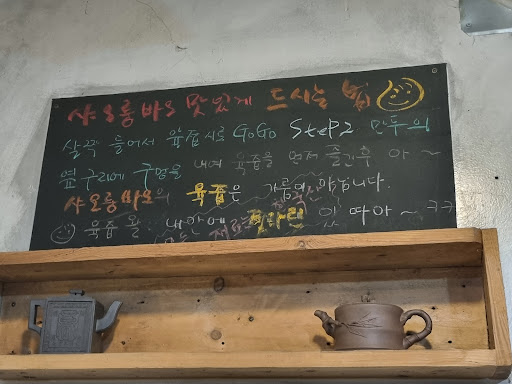 샤오롱바오 맛있게 드시는 법
살짝 들어서 육즙시로 GoGo Step2 만두의
옆구리에 구멍을 내어 육즙을 먼저 즐긴후 아~
샤오롱바오의 육즙은 기름이 아닙니다.
육즙을 내 안에